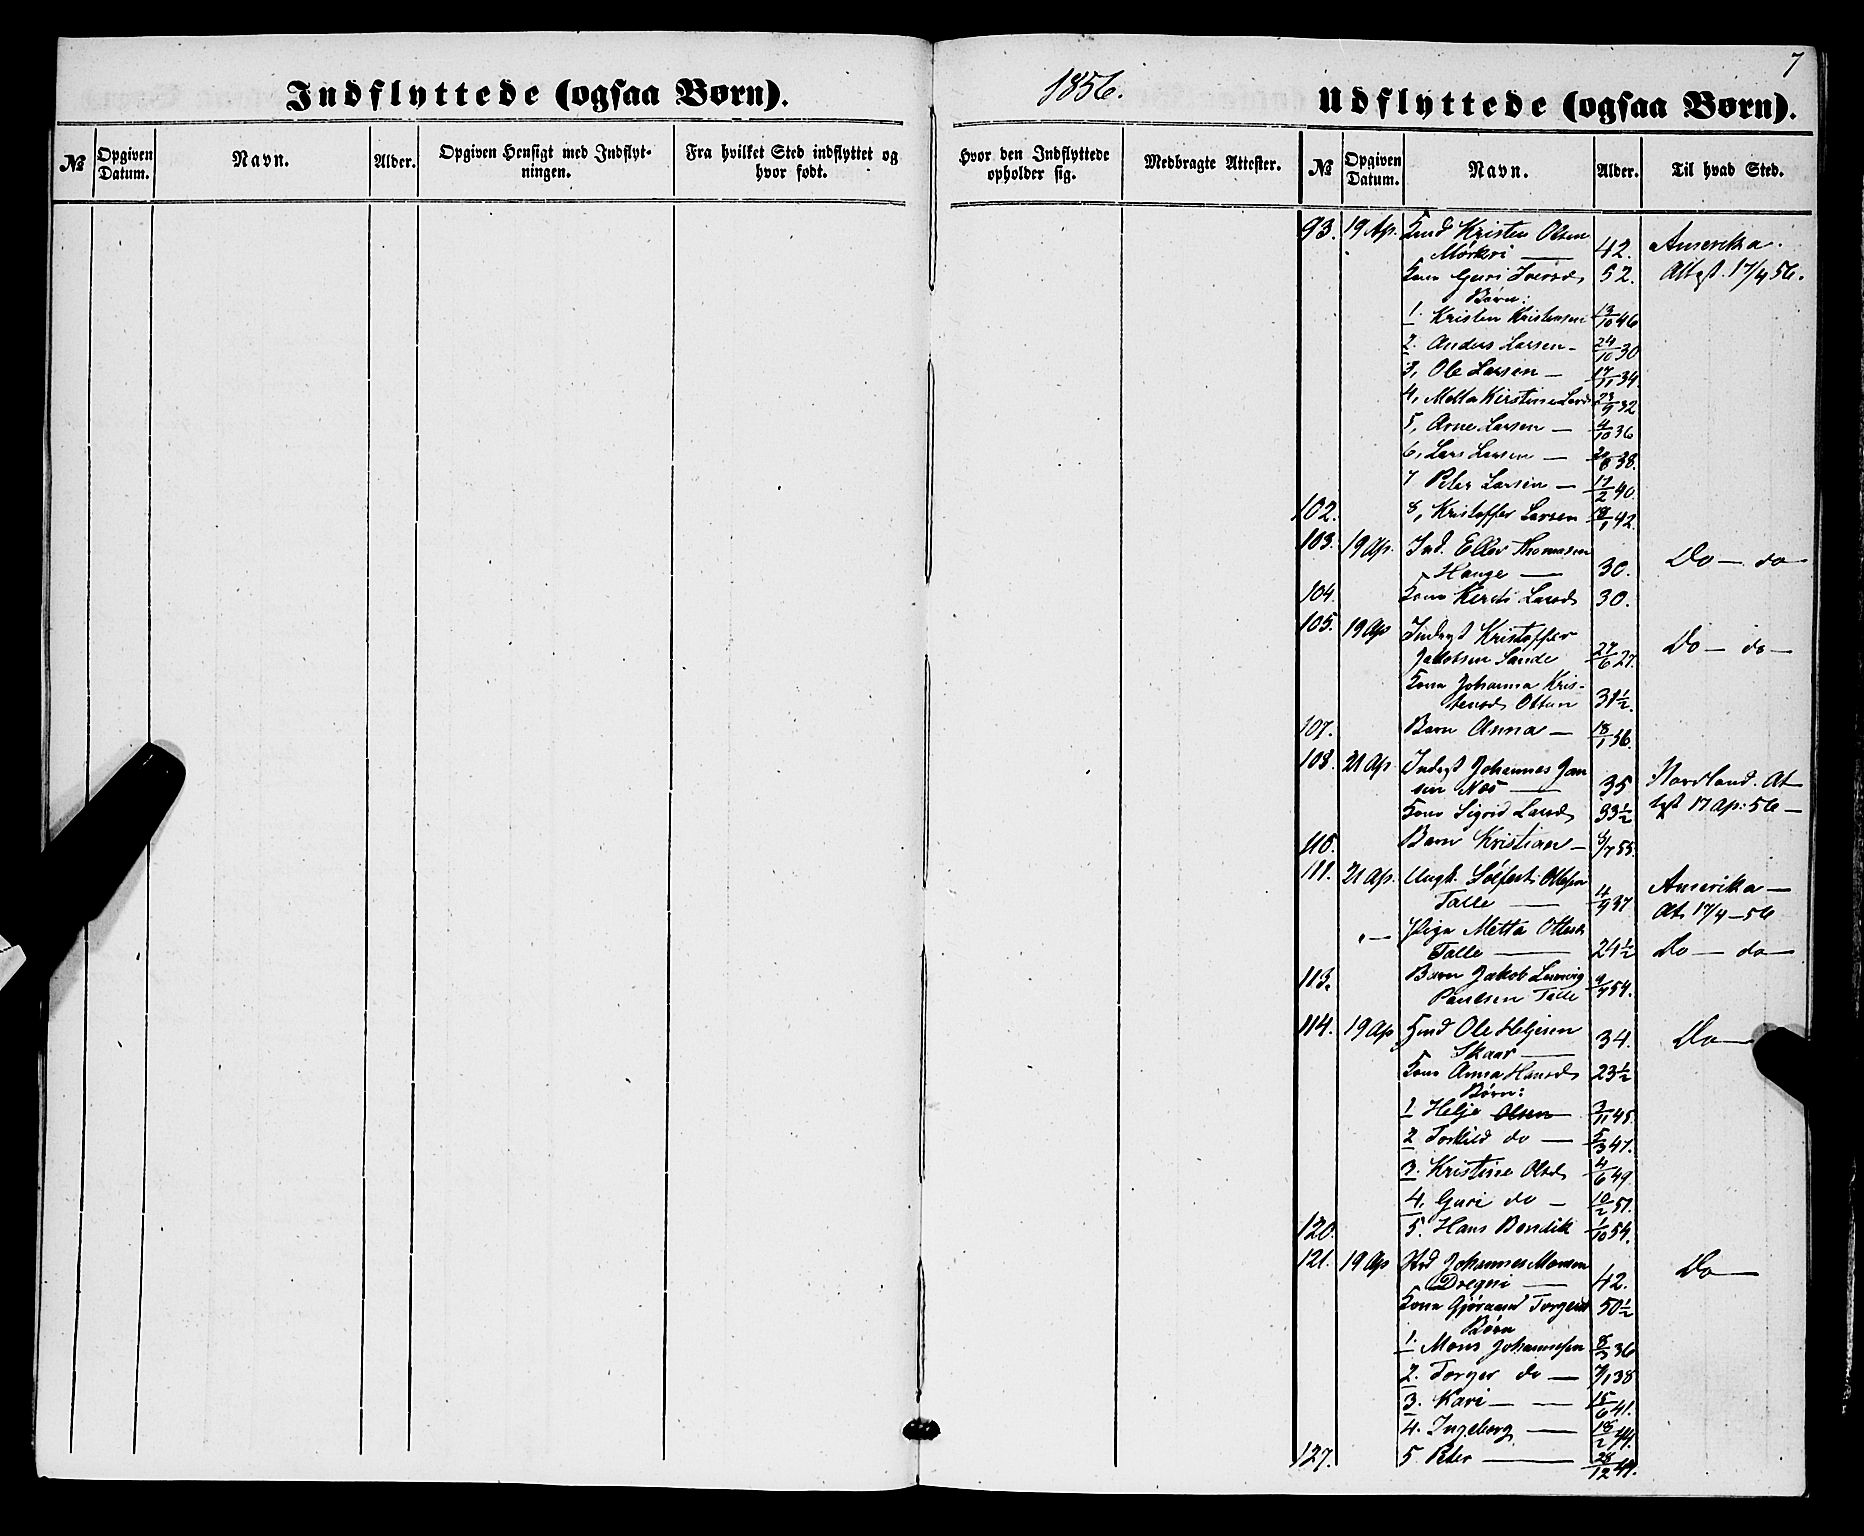 7
Indflyttede (ogsaa Børn).
1856.
Udflyttede (ogsaa Børn).
№ Opgiven Datum. Navn. Alder. Opgiven Hensigt med Indflyt-ningen. Fra hvilket Sted indflyttet og hvor født.
Hvor den Indflyttede opholder sig. Medbragte Attester. № Opgiven Datum. Navn. Alder. Til hvad Sted.
93. 19 Ap. Kristen Olsen
Mørkri — 42. Amerika.
Kone Guri Iversd 52. Attest. 17/4 56.
Børn:
1. Kristen Kristensen 13/10 46
2. Anders Larsen - 24/10 30
3, Ole Larsen — 17/11 34.
4, Metta Kirstine Larsd 23/9 32
5, Arne Larsen — 4/10 36
6, Lars Larsen — 20/8 38.
7 Peter Larsen — 17/2 40.
102. 8, Kristoffer Larsen 18/1 42.
103. 19 Ap. Ind. Eller Thomasen
Hauge — 30. Do — do —
104. Kone Kersti Larsd 30.
105. 19 Ap Inderst Kristoffer
Jakobsen Sande 27/6 27. Do — do —
Kone Johanna Kris-
tensd Ottum 31½.
107. Barn Anna — 18/1 56.
108. 21 Ap Inderst Johannes Jan
sen Næs — 35 Nordland. At
Kone Sigrid Larsd 33½ test 17 Ap: 56 —
110. Barn Kristian — 8/7 55.
111. 21 Ap. Ungk. Sølfest Ottesen
Talle — 4/9 37 Amerika —
At. 17/4 — 56
" — Pige Metta Ottesd
Talle — 24½ Do — do —
113. Barn Jakob Ludvig
Paulsen Talle 9/7 54.
114. 19 Ap Ole Heljesen
Skaar — 34. Do —
Kone Anna Hansd 23½
Børn:
1 Helje Olsen — 3/11 45.
2 Torkild do — 5/3 47.
3. Kristine Olsd 4/6 49.
4. Guri do - 10/2 51.
120. 5. Hans Bendik 1/10 54.
121. 19 Ap Johannes Monsen
Drægni — 42. Do —
Kone Gjøraand Torgersd 50½
Børn
1. Mons Johannesen 8/3 36
2. Torger do — 7/1 38
3. Kari — — 15/6 41.
4. Ingeborg — 18/2 44.
127. 5 Peter — 28/12 49.